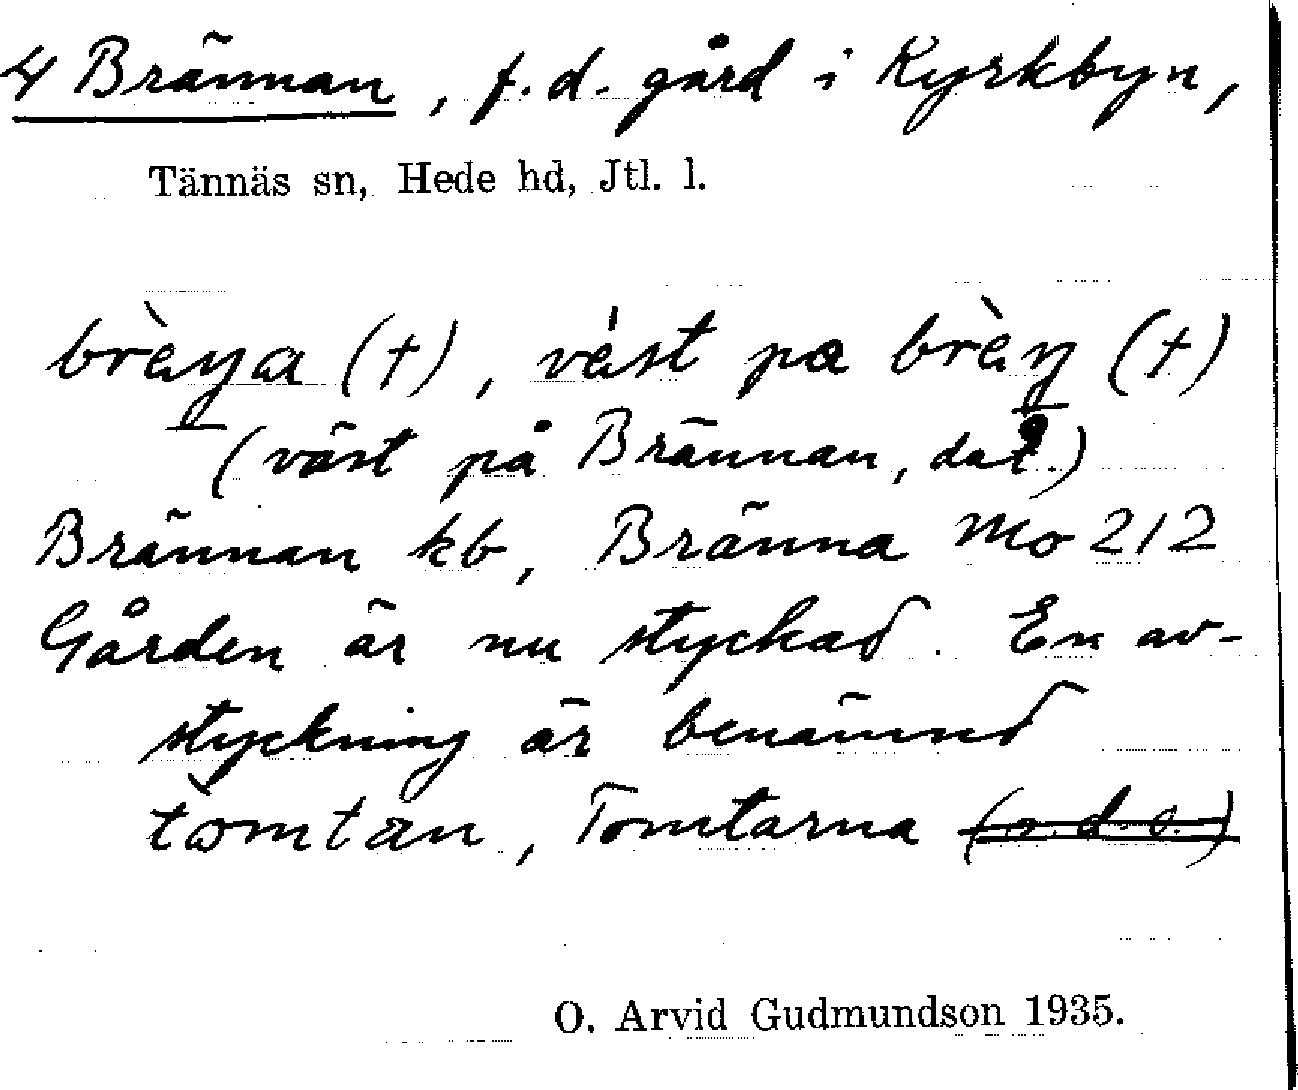 4 Brännan, f.d. gård i Kyrkbyn,
Tännäs sn, Hede hd, Jtl. l.
brèŋa (+), vést pa brèŋ (+)
(väst på Brännan, dat.)
Brännan kb, Bränna Mo 212
Gården är nu styckad. En av-
styckning är benämnd
tòmtan, Tomtarna (o.d.s.)
O. Arvid Gudmundson 1935.